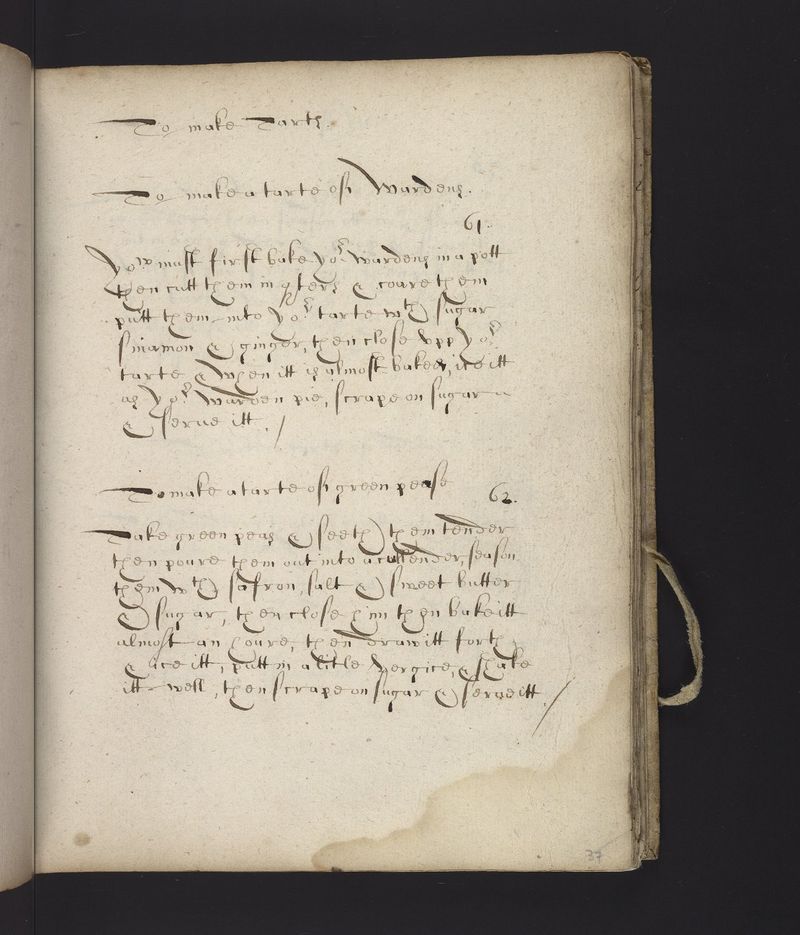 To make Tarts.
To make a tarte of Wardens.
61.
You must first bake yor wardens in a pott
then cutt them in qters & coare them
putt them into yor tarte wth sugar
sinamon & ginger, then close upp yor
tarte & when itt is almost baked, ice itt
as yor warden pie, scrape on sugar
& serue itt. /
To make a tarte of green pease
62.
Take green peas & seeth them tender
then poure them out into a cullender, season
them wth safron, salt & sweet butter
& sugar, then close him then bake itt
almost an houre, then draw itt forth
& ice itt, putt in a litle vergice, & shake
itt well, then scrape on sugar & serue itt. /
37